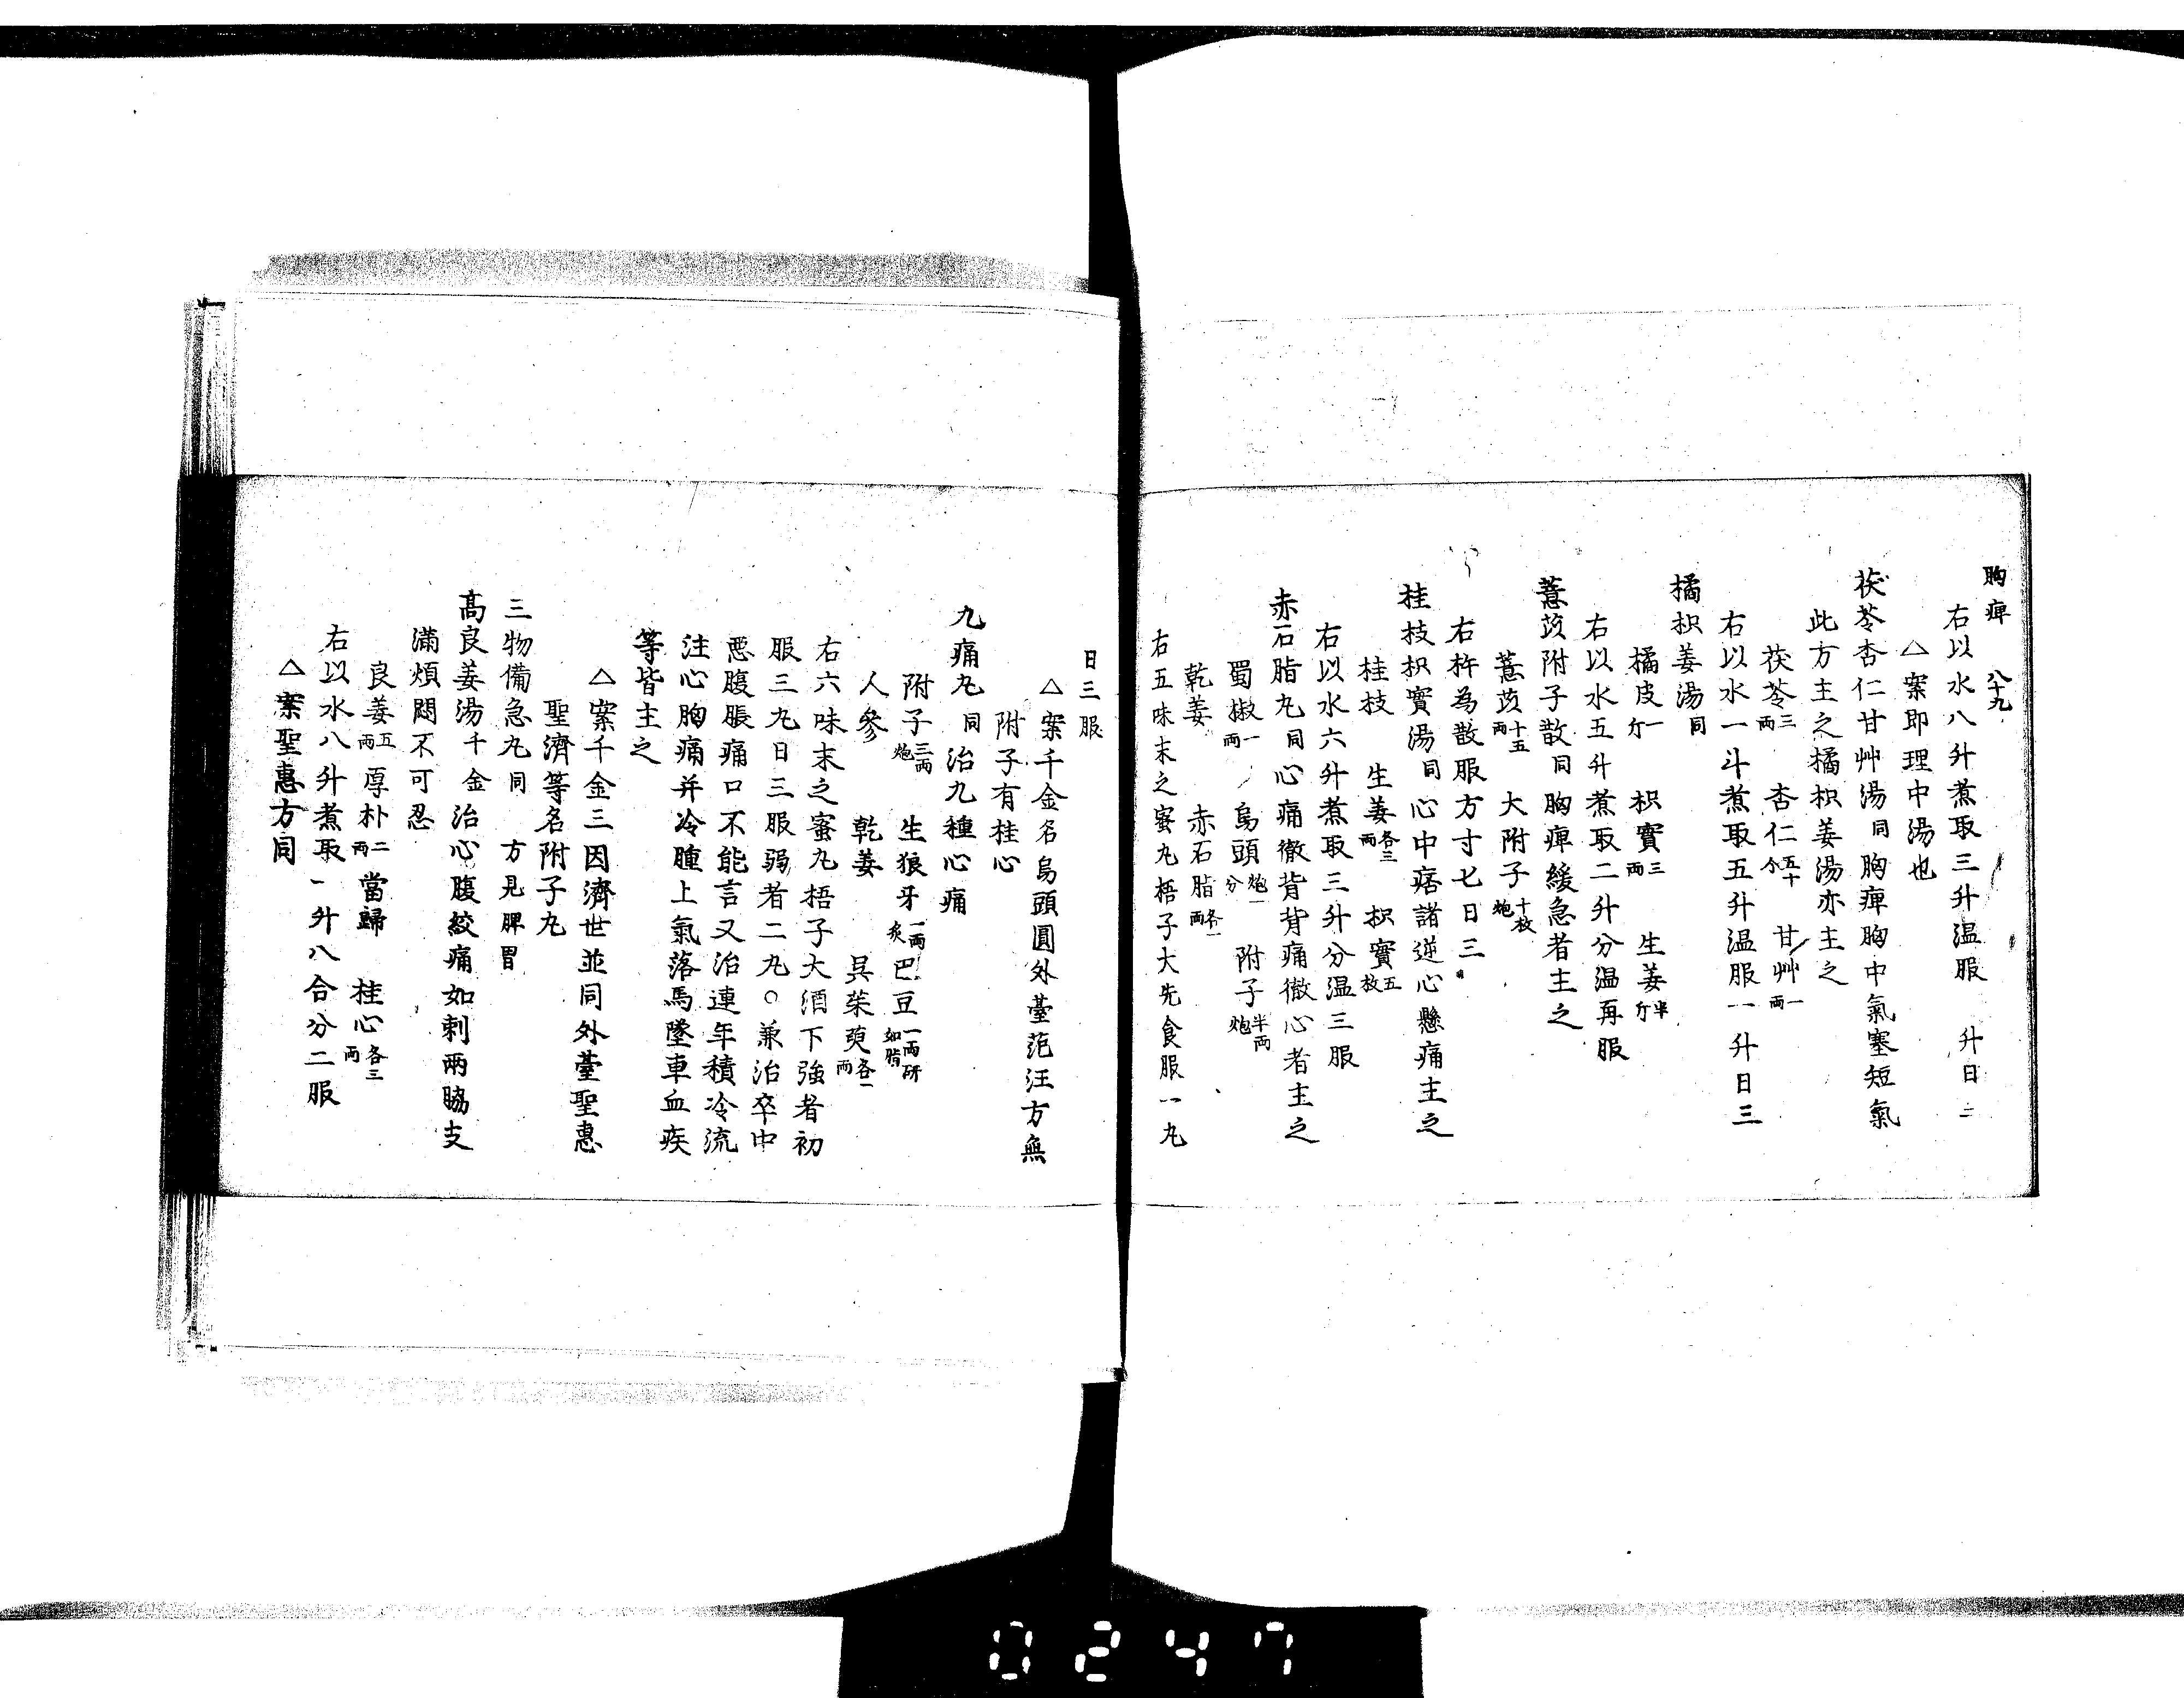 胸痺　八十九
右以水八升煮取三升温服　升日三
△案即理中湯也
茯苓杏仁甘艸湯同胸痺胸中氣塞短氣
此方主之橘枳姜湯亦主之
茯苓三兩　杏仁五十个　甘艸一兩
右以水一斗煮取五升温服一升日三
橘枳姜湯同
橘皮一斤　枳實三兩　生姜半斤
右以水五升煮取二升分温再服
薏苡附子散同胸痺緩急者主之
薏苡十五兩　大附子十枚炮
右杵為散服方寸七日三
桂枝枳實湯同心中痞諸逆心懸痛主之
桂枝　生姜各三兩　枳實五枚
右以水六升煮取三升分温三服
赤石脂丸同心痛徹背背痛徹心者主之
蜀椒一兩　烏頭炮一分　附子半兩炮
乾姜　赤石脂各一兩
右五味末之蜜丸梧子大先食服一丸
日三服
△案千金名烏頭圓外臺范汪方無
附子有桂心
九痛丸同治九種心痛
附子三兩炮　生狼牙一兩炙　巴豆一兩研如脂
人參　乾姜　呉茱萸各一兩
右六味末之蜜丸梧子大酒下強者初
服三丸日三服弱者二丸○兼治卒中
悪腹脹痛口不能言又治連年積冷流
注心胸痛并冷腫上氣落馬墜車血疾
等皆主之
△案千金三因濟世並同外臺聖惠
聖濟等名附子丸
三物備急丸同　方見脾胃
高良姜湯千金治心腹絞痛如刺兩脇支
滿煩悶不可忍
良姜五兩　厚朴二兩　當歸　桂心各三兩
右以水八升煮取一升八合分二服
△案聖惠方同
0247